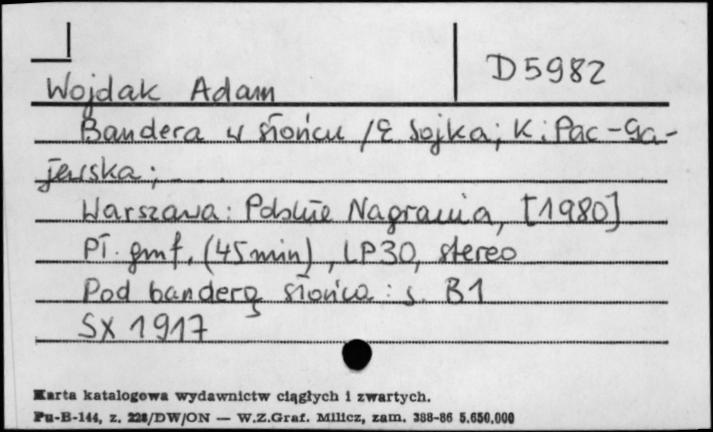 D 5982
Wojdak Adam
Bandera w słońcu / E Sojka; K. Pac-Ga-
jewska; . . .
Warszawa: Polskie Nagrania, [1980]
Pł. gmf. (45 min), LP30, stereo
Pod banderą słońca: s. B1
SX 1917
Karta katalogowa wydawnictw ciągłych i zwartych.
Pu-B-144, z. 228/DW/ON — W.Z.Graf. Milicz, zam. 388-86 5.650.000